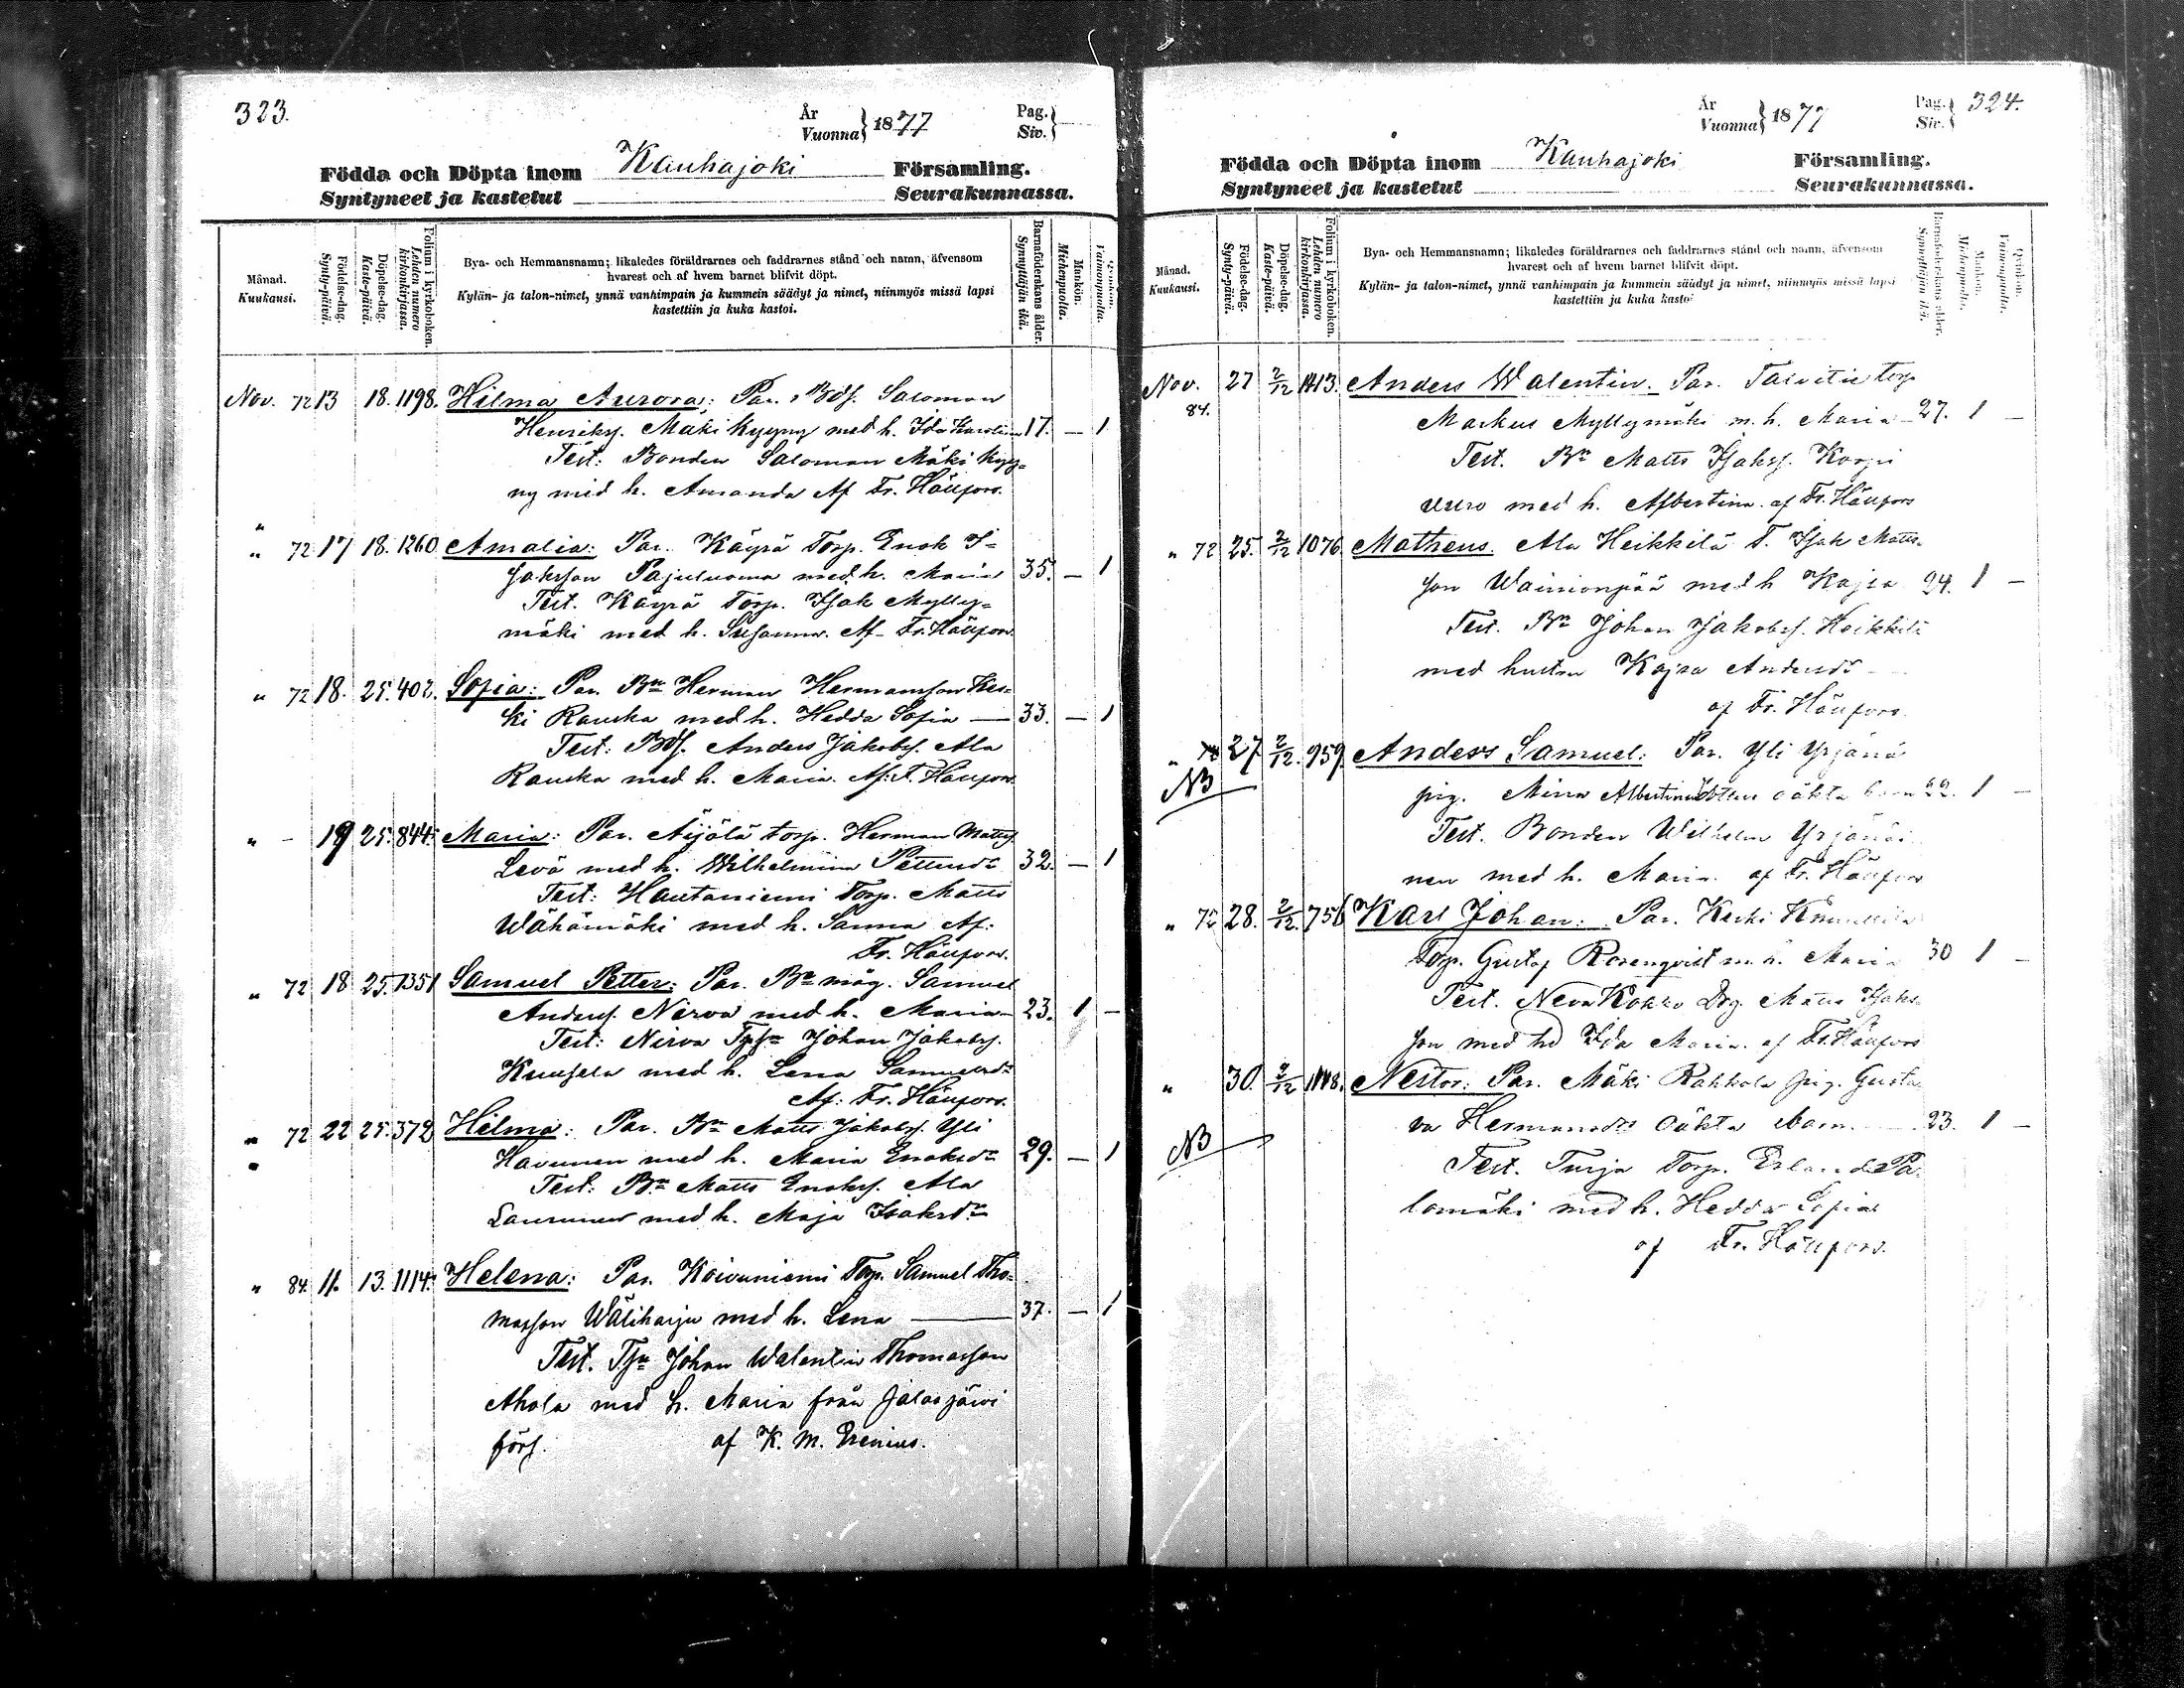 323.
År
Vuonna } 1877
Pag.
Siv. }
Födda och Döpta inom Kauhajoki Församling.
Syntyneet ja kastetut Seurakunnassa.
Månad.
Kuukausi.
Födelse-dag.
Synty-päivä.
Döpelse-dag.
Kaste-päivä.
Folium i kyrkoboken.
Lehden numero kirkonkirjassa.
Bya- och Hemmansnamn; likaledes föräldrarnes och faddrarnes stånd och namn, äfvensom
hvarest och af hvem barnet blifvit döpt.
Kylän- ja talon-nimet, ynnä vanhimpain ja kummein säädyt ja nimet, niinmyös missä lapsi
kastettiin ja kuka kastoi.
Barnaföderskans ålder.
Synnyttäjän ikä.
Mankön.
Miehenpuolia.
Qvinkön.
Vaimonpuolia.
Nov. 72 13 18. 1198. Hilma Aurora: Par. Bds. Salomon
Henriks. Mäki Kyyny med h. Ida Karolina 17. — 1
Test: Bonden Salomon Mäki Kyy=
ny med h. Amanda Af Fr. Häufors.
" 72 17 18. 1260 Amalia: Par. Käyrä Torp. Enok I=
saksson Pajuluoma med h. Maria 35. — 1
Test. Käyrä Torp. Isak Mylly=
mäki med h. Susanna. Af Fr. Häufors.
" 72 18. 25. 402. Sofia: Par. Bn Herman Hermansson Kes=
ki Rauska med h. Hedda Sofia — 33. — 1
Test: Bds. Anders Jakobs. Ala
Rauska med h. Maria. Af: F. Häufors.
" - 19 25. 844. Maria: Par. Äijälä torp. Herman Matts.
Levä med h. Wilhelmina Pettersdr 32. — 1
Test: Hautaniemi Torp. Matts
Wähämäki med h. Sanna Af:
Fr. Häufors.
" 72 18 25. 1351 Samuel Petter: Par. Bn måg. Samuel
Anders. Nirva med h. Maria — 23. 1 —
Test: Nirva Johan Jakobs.
Kuusela med h. Lena Samuelsdr
Af: Fr. Häufors.
" 72 22 25. 372 Hilma: Par. Bn Matts Jakobs. Yli
Havunen med h. Maria Enoksdr 29. — 1
Test: Bn Matts Enoks. Ala
Laurunen med h. Maja Isaksdr
" 84. 11. 13. 1114. Helena: Par. Koivuniemi Torp. Samuel Tho=
masson Wäliharju med h. Lena — 37. — 1
Test. Johan Walentin Thomasson
Ahola med h. Maria från Jalasjärvi
förs. af K. M. Erenius.
År
Vuonna } 1877
Pag.
Siv. } 324.
Födda och Döpta inom Kauhajoki Församling.
Syntyneet ja kastetut Seurakunnassa.
Månad.
Kuukausi.
Födelse-dag.
Synty-päivä.
Döpelse-dag.
Kaste-päivä.
Folium i kyrkoboken.
Lehden numero kirkonkirjassa.
Bya- och Hemmansnamn; likaledes föräldrarnes och faddrarnes stånd och namn, äfvensom
hvarest och af hvem barnet blifvit döpt.
Kylän- ja talon-nimet, ynnä vanhimpain ja kummein säädyt ja nimet, niinmyös missä lapsi
kastettiin ja kuka kastoi
Barnaföderskans ålder.
Synnyttäjän ikä.
Mankön.
Miehenpuolia.
Qvinkön.
Vaimonpuolia.
Nov. 27 2/12 1413. Anders Walentin. Par. Talvitie torp
84. Markus Myllymäki m. h. Maria — 27. 1 —
Test. Bn Matts Isaks. Korpi
vuro med h. Albertina. af Fr. Häufors
" 72 25. 2/12 1076. Matheus. Ala Heikkilä T. Isak Matts
son Wainionpää med h Kajsa 24. 1 —
Test. Bn Johan Jakobs. Heikkilä
med hustru Kajsa Andersdr
af Fr. Häufors.
" 27 2/12. 959. Anders Samuel: Par. Yli Yrjänä
NB pig. Mina Albertina oäkta barn 22. 1 —
Test. Bonden Wilhelm Yrjänäi
nen med h. Maria. af Fr. Häufors
" 72 28. 2/12. 756 Karl Johan: Par. Keski Knuuttila
Torp. Gustaf Rosenqvist m. h. Maria 30 1 —
Test. Neva Kokko Drg. Matts Isaks
son med h Ida Maria. af Fr. Häufors
" 30. 2/12 1118. Nestor: Par. Mäki Rahkola pig. Gusta
NB va Hermansdr oäkta barn. 23. 1 —
Test. Turja Torp. Erland Pa
lomäki med h. Hedda Sofia
af Fr. Häufors.